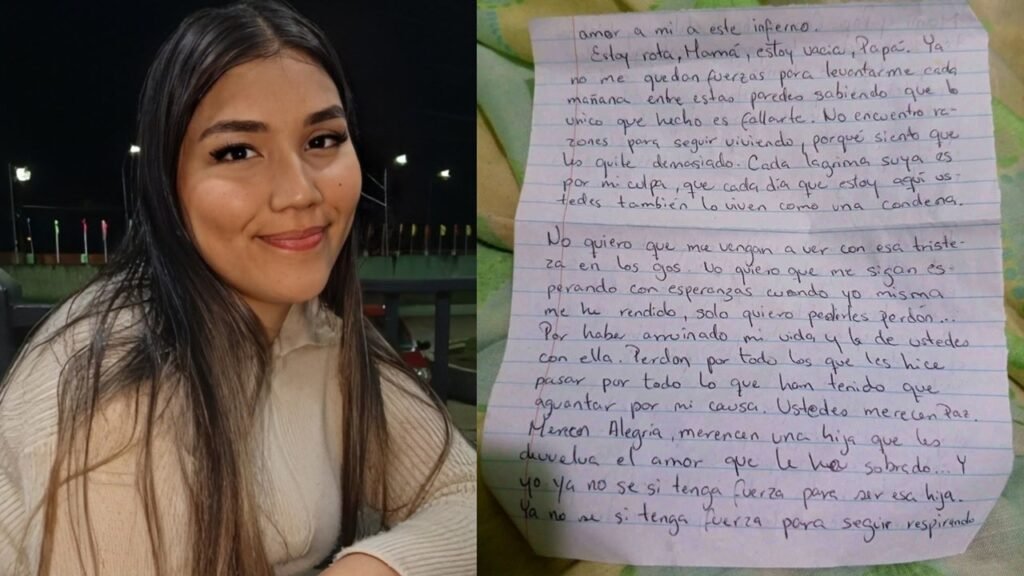 amor a mi a este infierno.
Estoy rota, Mamá, estoy vacia, Papá. Ya
no me quedan fuerzas para levantarme cada
mañana entre estas paredes sabiendo que lo
unico que hecho es fallarte. No encuentro ra-
zones para seguir viviendo, porqué siento que
les quite demasiado. Cada lagrima suya es
por mi culpa, que cada dia que estoy aqui us-
tedes también lo viven como una condena.
No quiero que me vengan a ver con esa triste-
za en los ojos. No quiero que me sigan es-
perando con esperanzas cuando yo misma
me he rendido, solo quiero pedirles perdon...
Por haber arruinado mi vida y la de ustedes
con ella. Perdon, por todo los que les hice
pasar por todo lo que han tenido que
aguantar por mi causa. Ustedes merecen Paz.
Merecen Alegria, merencen una hija que les
devuelva el amor que le ha sobrado... Y
yo ya no se si tenga fuerza para ser esa hija.
Ya no se si tenga fuerza para seguir respirando